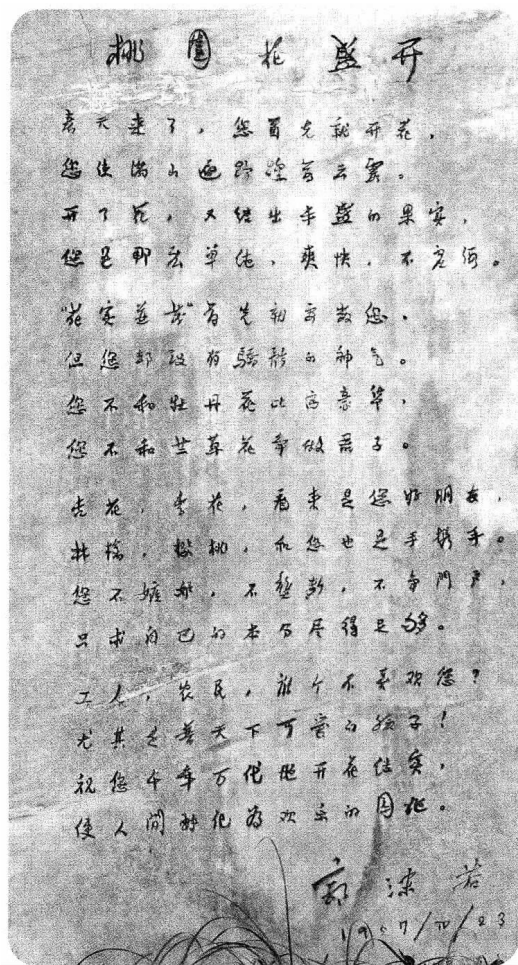 桃園花盛开
春天来了，您首先就开花，
您使满山遍野 着云霞。
开了花，又结出丰盛的果实，
您是那么单纯，爽快，不虚 。
"花实並茂"首先 数您，
但您却没有骄矜的神气。
您不和牡丹花比 豪华，
您不和兰草花争做君子。
杏花，李花，看来是您好朋友，
林檎，樱桃，和您也是手携手。
您不嫉妒，不垄断，不争門户，
只求自己的本分尽得足够。
工人，农民，谁个不喜欢您？
尤其是普天下可爱的孩子！
祝您千年万代地开花结实，
使人间转化为欢乐的园地。
郭沫若